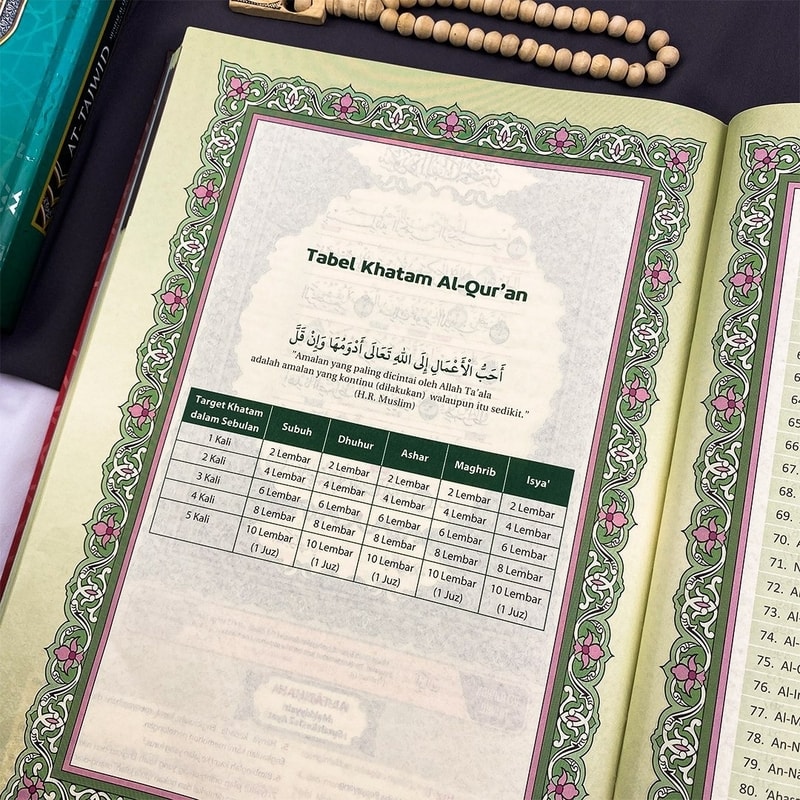 AT-TAJWID
Tabel Khatam Al-Qur'an
أَحَبُّ الْأَعْمَالِ إِلَى اللهِ تَعَالَى أَدْوَمُهَا وَإِنْ قَلَّ
"Amalan yang paling dicintai oleh Allah Ta'ala
adalah amalan yang kontinu (dilakukan) walaupun itu sedikit."
(H.R. Muslim)
Target Khatam dalam Sebulan Subuh Dhuhur Ashar Maghrib Isya'
1 Kali 2 Lembar 2 Lembar 2 Lembar 2 Lembar 2 Lembar
2 Kali 4 Lembar 4 Lembar 4 Lembar 4 Lembar 4 Lembar
3 Kali 6 Lembar 6 Lembar 6 Lembar 6 Lembar 6 Lembar
4 Kali 8 Lembar 8 Lembar 8 Lembar 8 Lembar 8 Lembar
5 Kali 10 Lembar (1 Juz) 10 Lembar (1 Juz) 10 Lembar (1 Juz) 10 Lembar (1 Juz) 10 Lembar (1 Juz)
66.
67.
68.
69.
70.
71.
72.
73. Al-
74. Al-
75. Al-
76. Al-
77. Al-M
78. An-N
79. An-Na
80. 'Abas